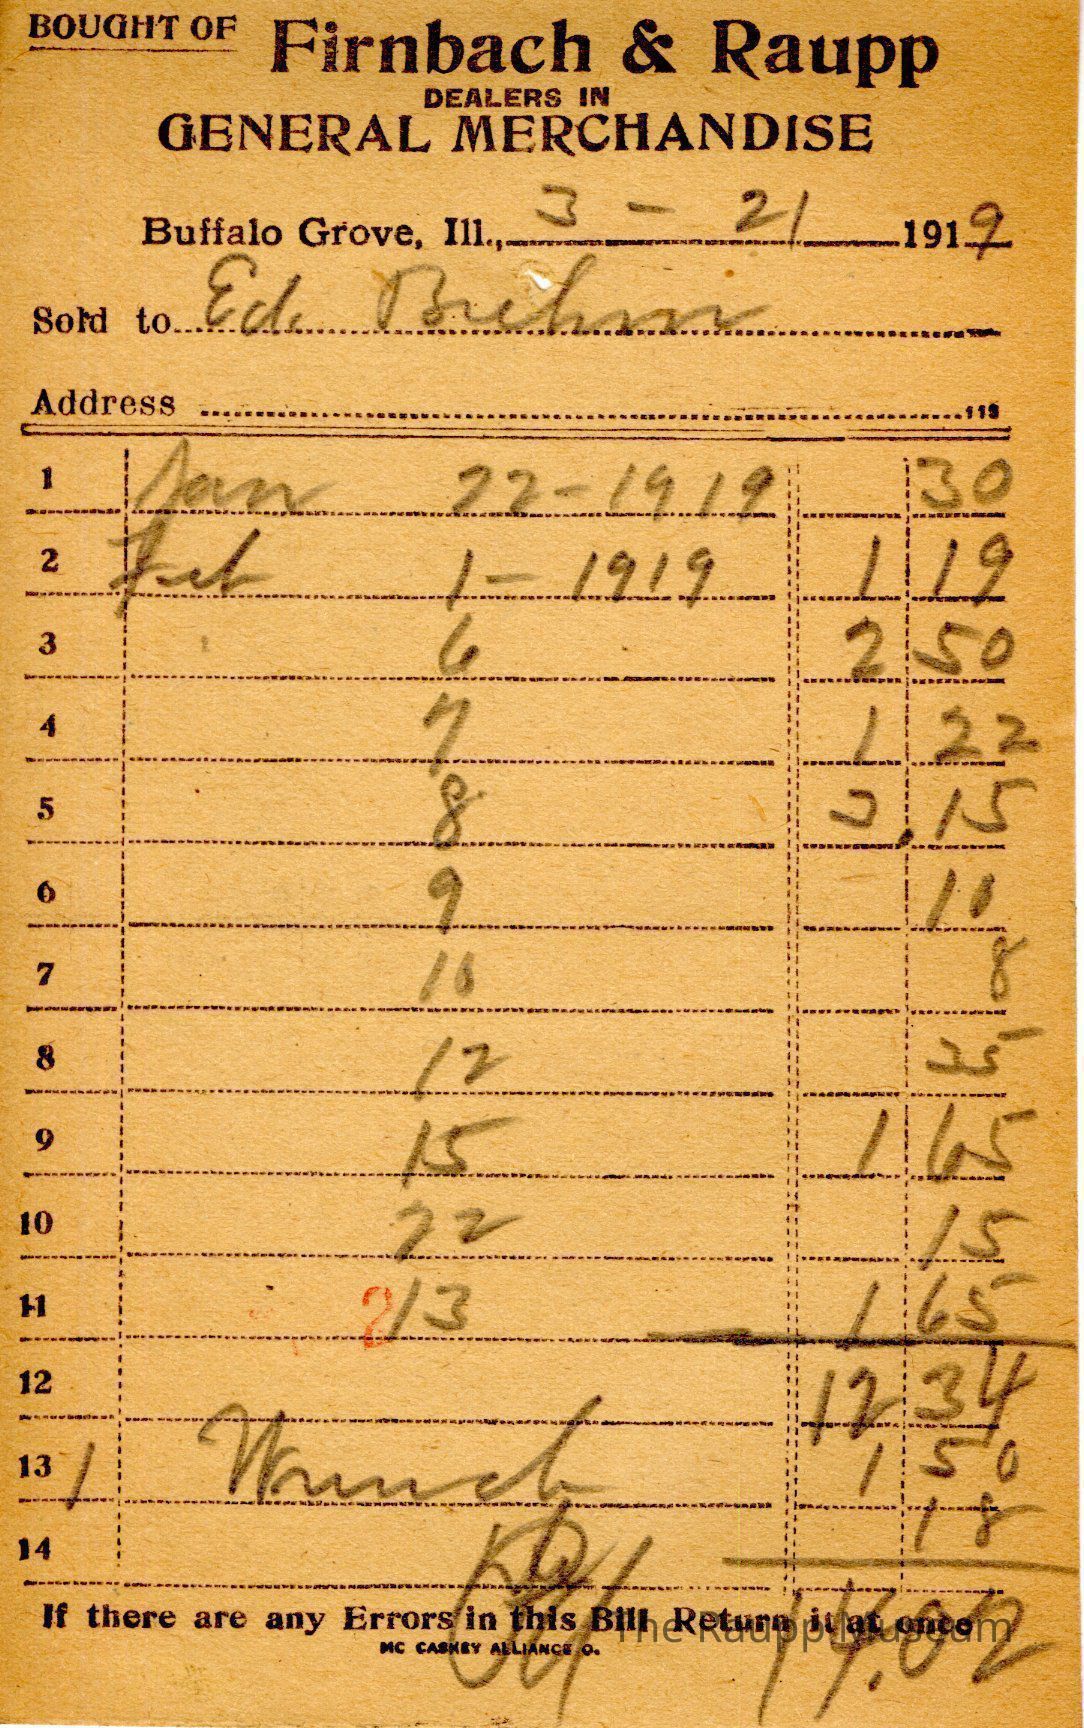 BOUGHT OF Firnbach & Raupp
DEALERS IN
GENERAL MERCHANDISE
Buffalo Grove, Ill., 3 - 21 1919
Sold to Ed.
Address 113
1 Jan 22-1919 30
2 Feb 1-1919 1 19
3 6 2 50
4 7 1 22
5 8 3.15
6 9 10
7 10 8
8 12 35
9 15 1 65
10 22 15
11 2 13 1 65
12 12 34
13 1 Wrench 1 50
14 18
If there are any Errors in this Bill Return it at once
14.02
MC CASKEY ALLIANCE O.
The Raupp Museum